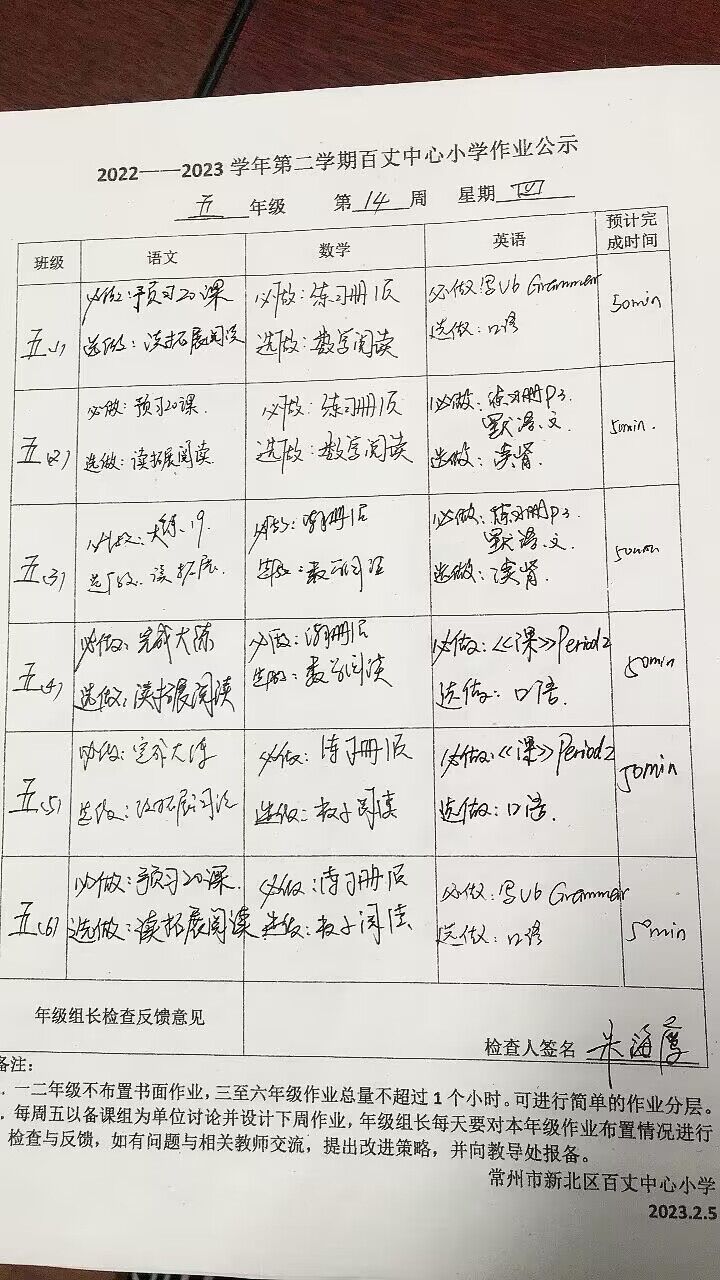 2022——2023 学年第二学期百丈中心小学作业公示
五 年级 第 14 周 星期 四
班级 语文 数学 英语 预计完成时间
五(1) 必做:预习20课 必做:练习册1页 必做:写U6 Grammar 50min
选做:读拓展阅读 选做:数学阅读 选做:口语
五(2) 必做:预习20课. 必做:练习册1页 必做:练习册P3. 50min.
默语.文.
选做:读拓展阅读. 选做:数学阅读 选做:读背.
五(3) 必做:大练.19 必做:练习册1页 必做:练习册P3. 50min
默语.文.
选做:读拓展. 选做:数学阅读 选做:读背.
五(4) 必做:完成大练 必做:练习册1页 必做:《课》Period2 50min
选做:读拓展阅读 选做:数学阅读 选做:口语.
五(5) 必做:完成大练 必做:练习册1页 必做:《课》Period2 50min
选做:读拓展阅读 选做:数学阅读 选做:口语.
五(6) 必做:预习20课. 必做:练习册1页 必做:写U6 Grammar 50min
选做:读拓展阅读 选做:数学阅读 选做:口语
年级组长检查反馈意见
检查人签名 朱海
备注:
. 一二年级不布置书面作业,三至六年级作业总量不超过 1 个小时。可进行简单的作业分层。
. 每周五以备课组为单位讨论并设计下周作业,年级组长每天要对本年级作业布置情况进行
检查与反馈,如有问题与相关教师交流,提出改进策略,并向教导处报备。
常州市新北区百丈中心小学
2023.2.5